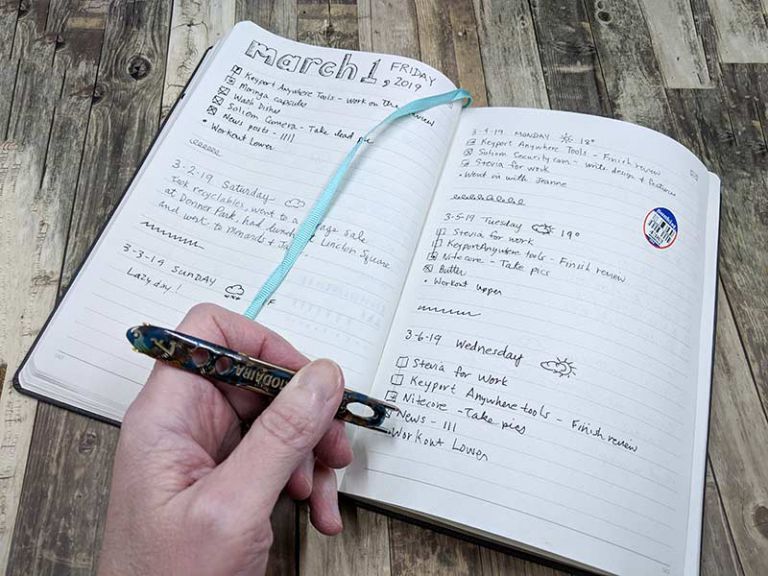 march 1, FRIDAY
2019
Keyport Anywhere Tools - work on the review
Moringa capsule
Wash Dishes
Soliom Camera - Take dead pic
News posts - 1111
• Workout Lower
3-2-19 Saturday
Took recyclables, went to a sale
at Donner Park, had lunch at Lincoln Square
and work, to Menards &
3-3-19 SUNDAY
Lazy day!
F
3-4-19 MONDAY 18°
Keyport Anywhere Tools - Finish review
Soliom Security.com - write design & features
Stevia for work
• Went in with Jeanne
3-5-19 Tuesday 19°
Stevia for work
Keyport Anywhere tools - Finish review
Nitecore - Take pics
Butter
• Workout upper
3-6-19 Wednesday
Stevia for work
Keyport Anywhere tools - Finish review
Nitecore - Take pics
News - 1111
Workout Lower